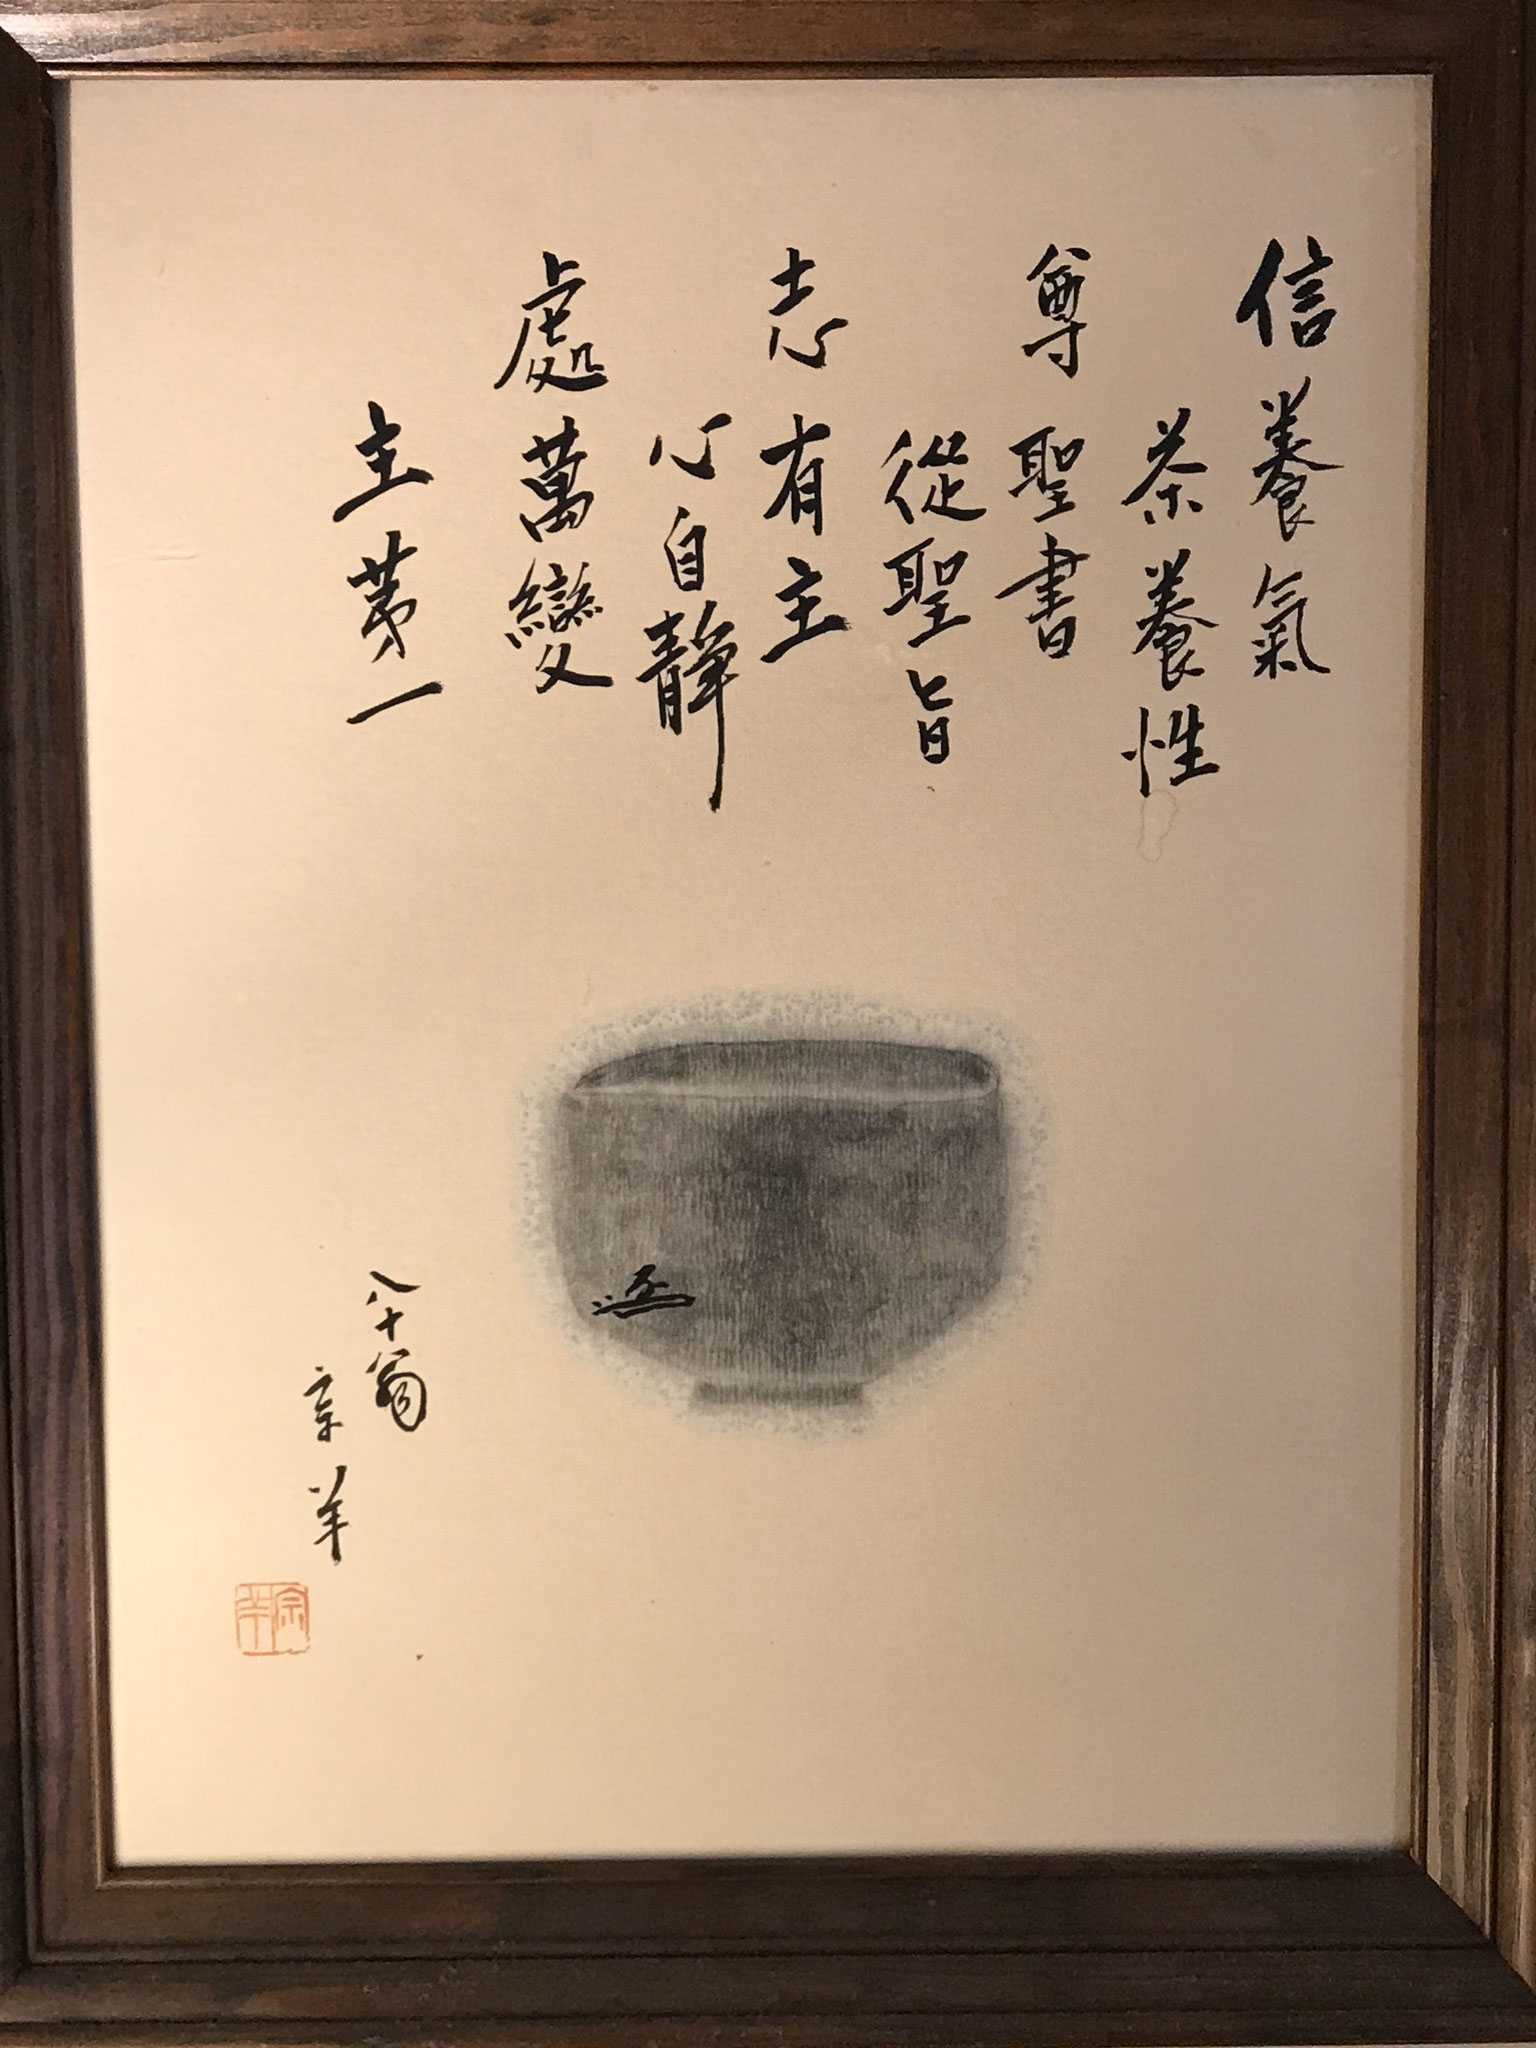 信養氣
茶養性
尊聖書
從聖旨
志有主
心自靜
處萬變
主茅一
八十翁
宗羊
宗羊